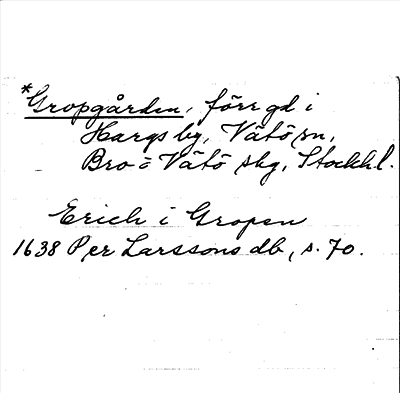 *Gropgården, förr gd i
Hargs by, Vätö sn,
Bro o Vätö skg, Stockhl.
Erich i Gropen
1638 Per Larssons db, s. 70.